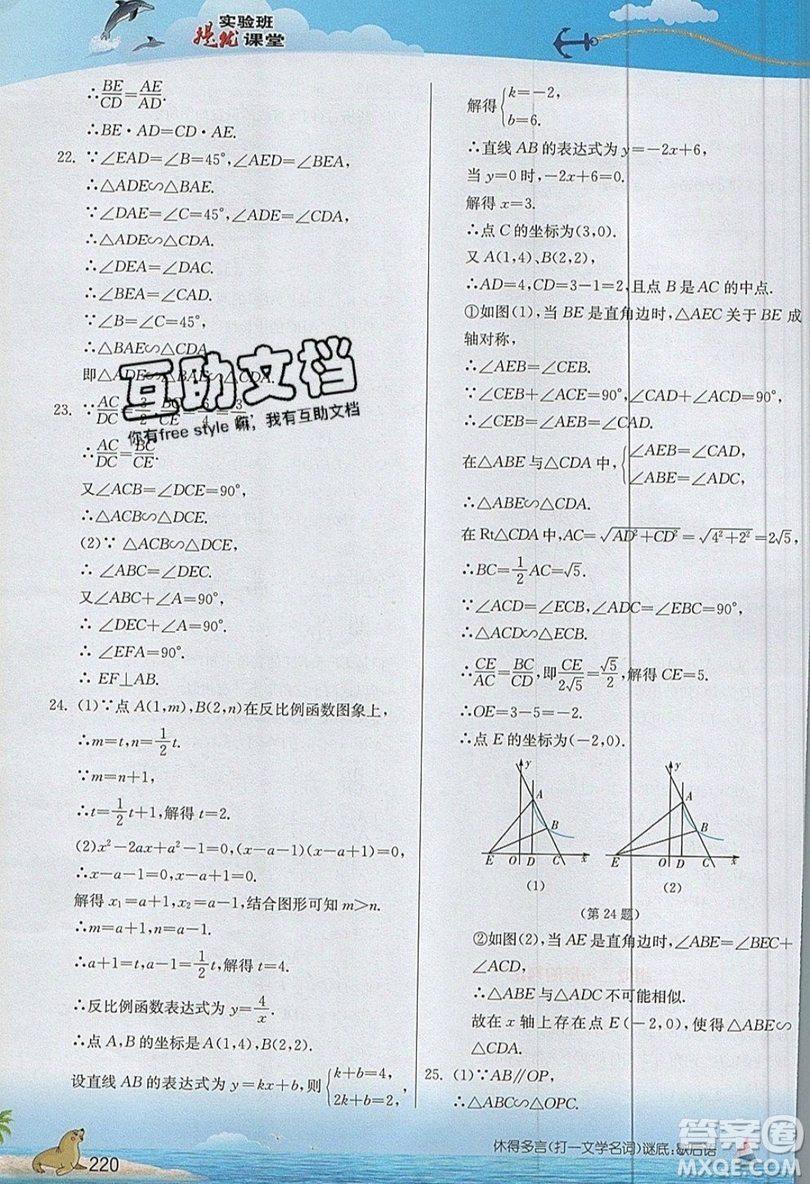 实验班
提优课堂
∴BE/CD=AE/AD.
∴BE·AD=CD·AE.
22. ∵∠EAD=∠B=45°,∠AED=∠BEA,
∴△ADE∽△BAE.
∵∠DAE=∠C=45°,∠ADE=∠CDA,
∴△ADE∽△CDA.
∴∠DEA=∠DAC.
∴∠BEA=∠CAD.
∵∠B=∠C=45°,
∴△BAE∽△CDA.
即△ADE∽△BAE∽△CDA.
互助文档
你有free style 嘛，我有互助文档
23. ∵AC/DC=3/2
∴AC/DC=BC/CE.
又∠ACB=∠DCE=90°,
∴△ACB∽△DCE.
(2)∵ △ACB∽△DCE,
∴ ∠ABC=∠DEC.
又∠ABC+∠A=90°,
∴ ∠DEC+∠A=90°.
∴ ∠EFA=90°.
∴ EF⊥AB.
24. (1)∵点 A(1,m),B(2,n)在反比例函数图象上,
∴m=t,n=1/2t.
∵m=n+1,
∴t=1/2t+1,解得 t=2.
(2)x²-2ax+a²-1=0,(x-a-1)(x-a+1)=0,
∴x-a-1=0 或 x-a+1=0.
解得 x₁=a+1,x₂=a-1,结合图形可知 m>n.
∴m=a+1,n=a-1.
∴a+1=t,a-1=1/2t,解得 t=4.
∴反比例函数表达式为 y=4/x.
∴点 A,B 的坐标是 A(1,4),B(2,2).
设直线 AB 的表达式为 y=kx+b,则{k+b=4, 2k+b=2,,
解得{k=-2, b=6.
∴直线 AB 的表达式为 y=-2x+6,
当 y=0 时,-2x+6=0.
解得 x=3.
∴点 C 的坐标为(3,0).
又 A(1,4)、B(2,2),
∴AD=4,CD=3-1=2,且点 B 是 AC 的中点.
①如图(1),当 BE 是直角边时,△AEC 关于 BE 成
轴对称,
∴∠AEB=∠CEB.
∵∠CEB+∠ACE=90°,∠CAD+∠ACD=90°,
∴∠CEB=∠CAD.∴∠AEB=∠CAD.
在△ABE 与△CDA 中,{∠AEB=∠CAD, ∠ABE=∠CDA,
∴△ABE∽△CDA.
在 Rt△CDA 中,AC=√(AD²+CD²)=√(4²+2²)=2√5,
∴BC=1/2AC=√5.
∵∠ACD=∠ECB,∠ADC=∠EBC=90°,
∴△ACD∽△ECB.
∴CE/AC=BC/CD,即CE/2√5=√5/2,解得 CE=5.
∴OE=3-5=-2.
∴点 E 的坐标为(-2,0).
y A B E O D C x
y A B E O D C x
(1) (2)
(第 24 题)
②如图(2),当 AE 是直角边时,∠ABE=∠BEC+
∠ACE,∴△ABE 与△ADC 不可能相似.
故在 x 轴上存在点 E(-2,0),使得△ABE∽
△CDA.
25. (1)∵AB∥OP,
∴△ABC∽△POC.
220
休得多言(打一文学名词)谜底:歇后语
答案圈
MXQE.COM